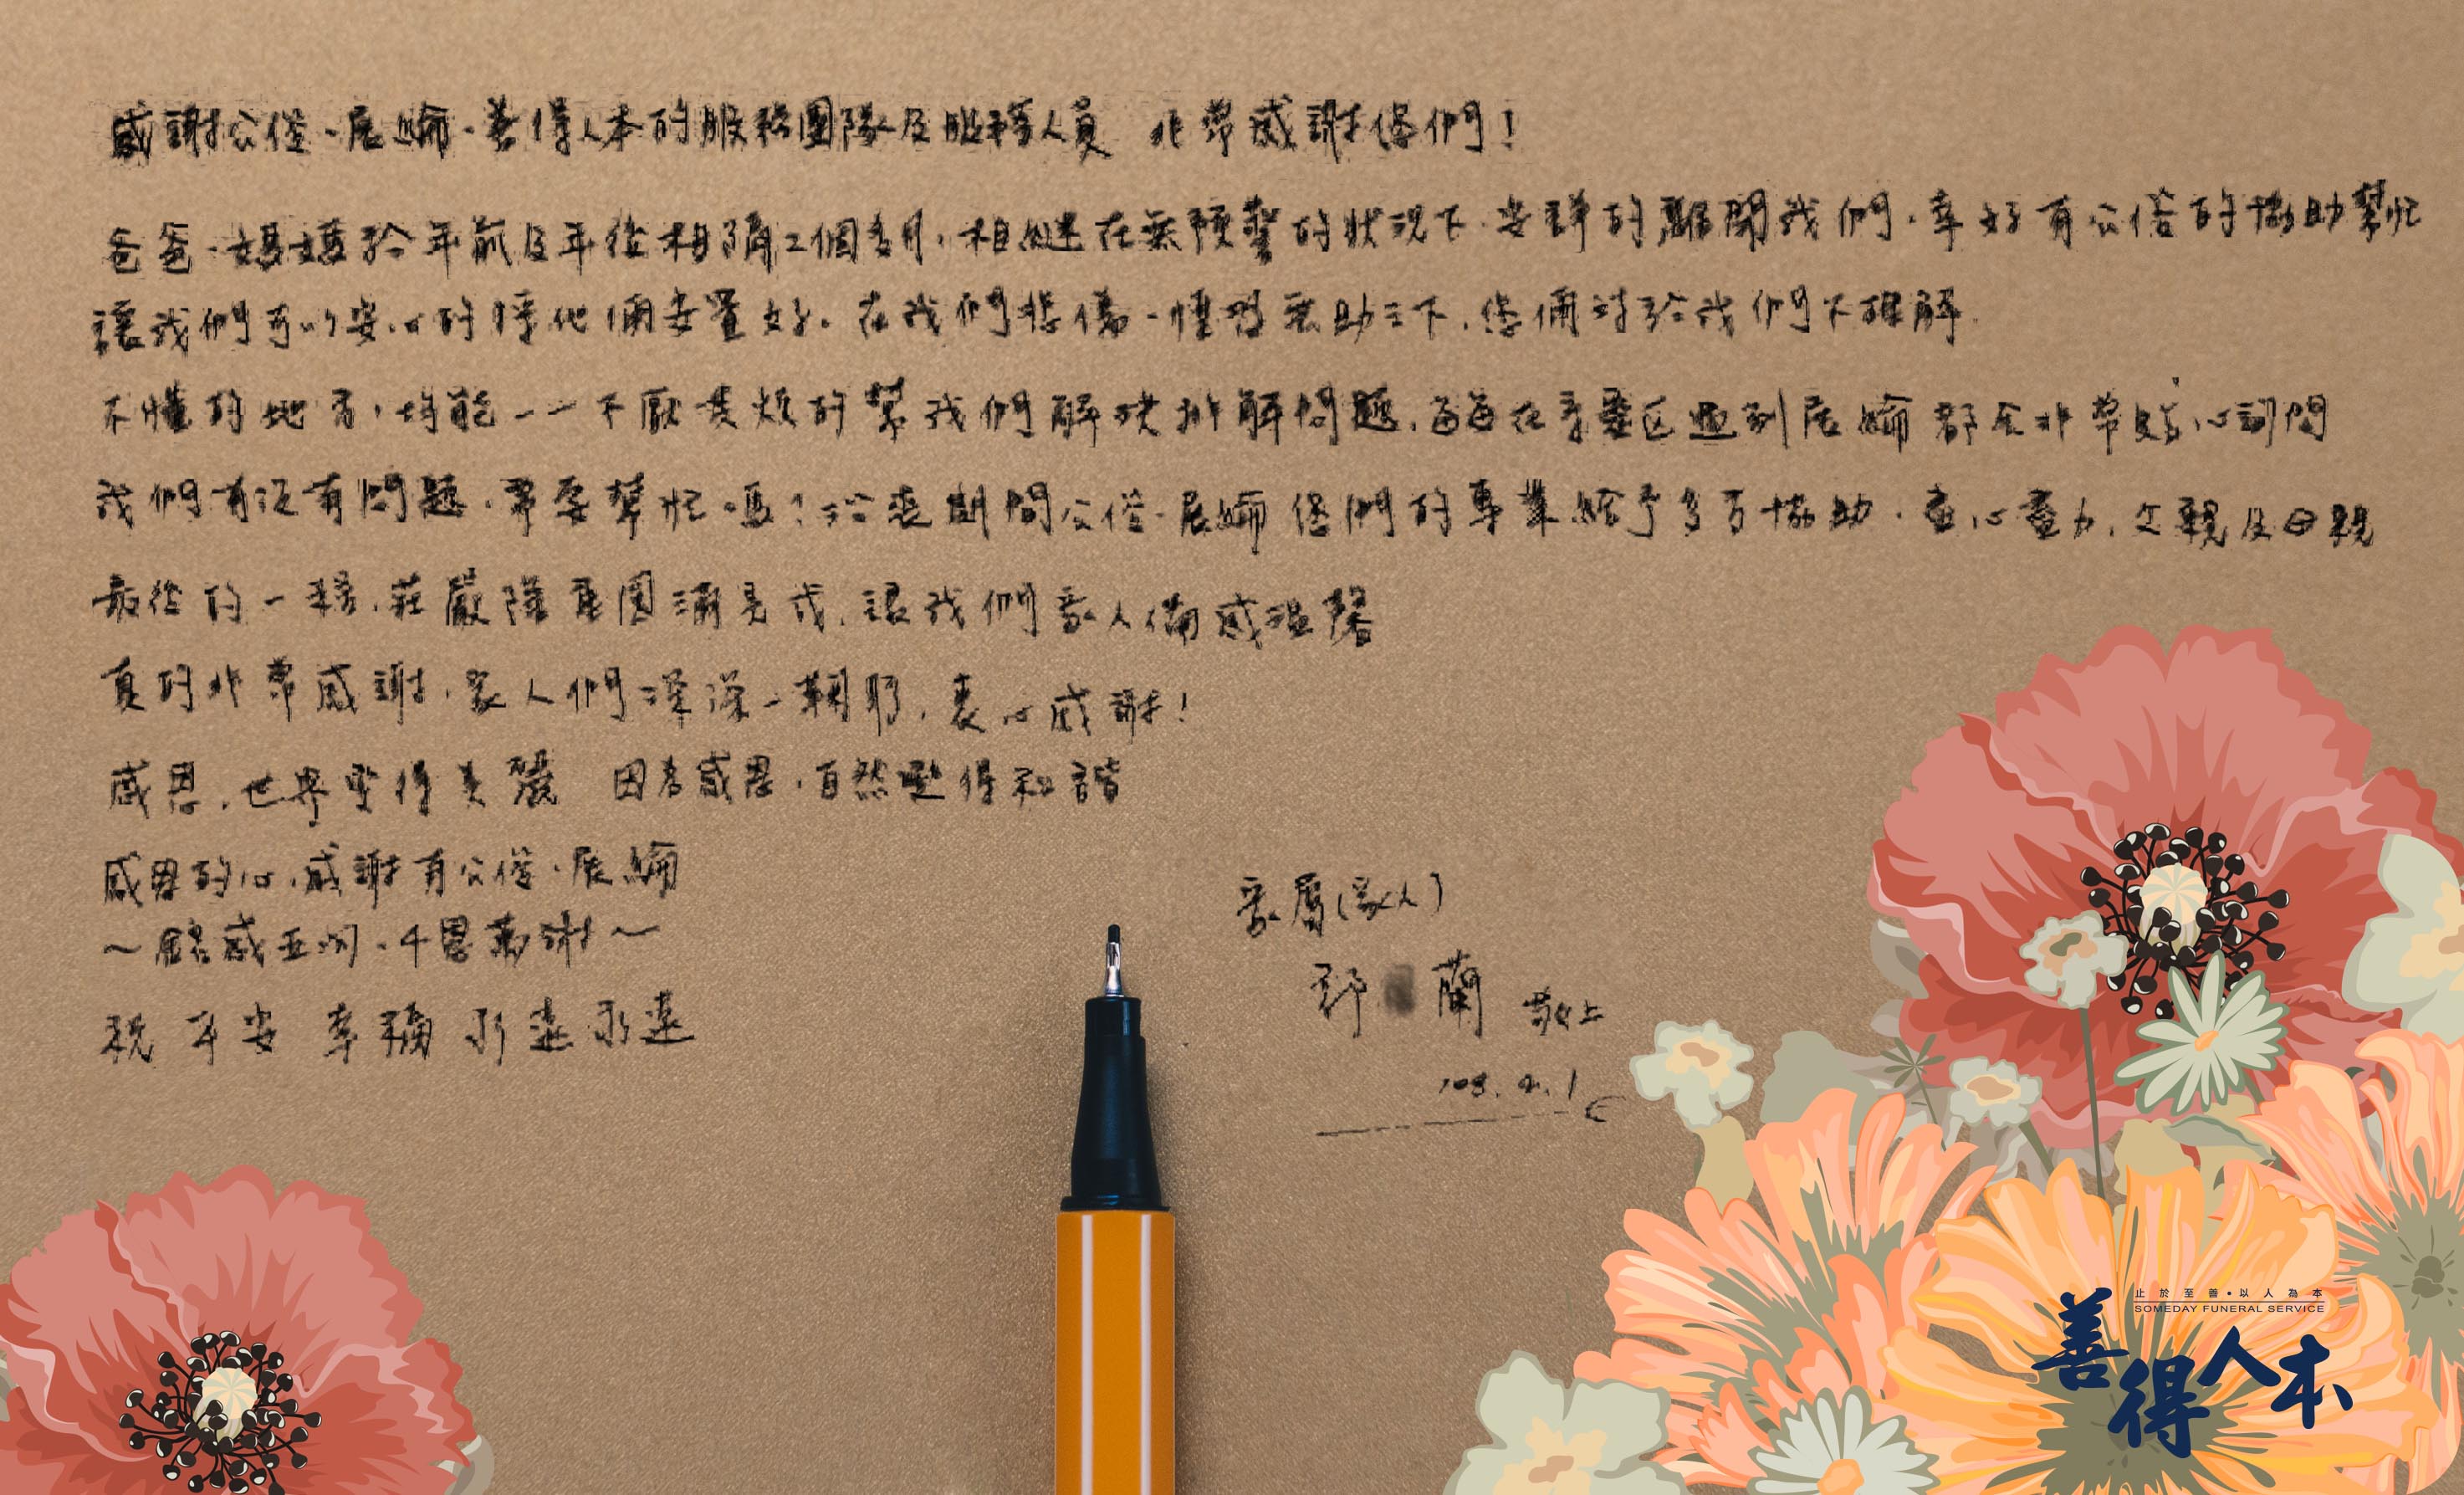 感謝公俗、展綸、善得人本的服務團隊及服務人員 非常感謝您們!
爸爸、媽媽於年前及年後相隔2個多月,相繼在無預警的狀況下、安詳的離開我們,幸好有公俗的協助幫忙
讓我們可以安心的將他倆安置好。在我們悲傷、懷念無助之下,您倆對於我們不理解
不懂的地方,均能一一不厭其煩的幫我們解決排解問題,每每在靈區遇到展綸都會非常貼心詢問
我們有沒有問題、需要幫忙嗎?治喪期間公俗、展綸您們的專業給予多方協助,盡心盡力,父親及母親
最後的一程,莊嚴隆重圓滿完成,讓我們家人備感溫馨
真的非常感謝,家人們深深一鞠躬,衷心感謝!
感恩,世界變得美麗 因為感恩,自然變得和諧
感恩的心,感謝有公俗、展綸
~銘感五內、千恩萬謝~
祝 平安 幸福 永遠永遠
家屬(家人)
鄂 蘭 敬上
108.2.1
止於至善•以人為本
SOMEDAY FUNERAL SERVICE
善得人本